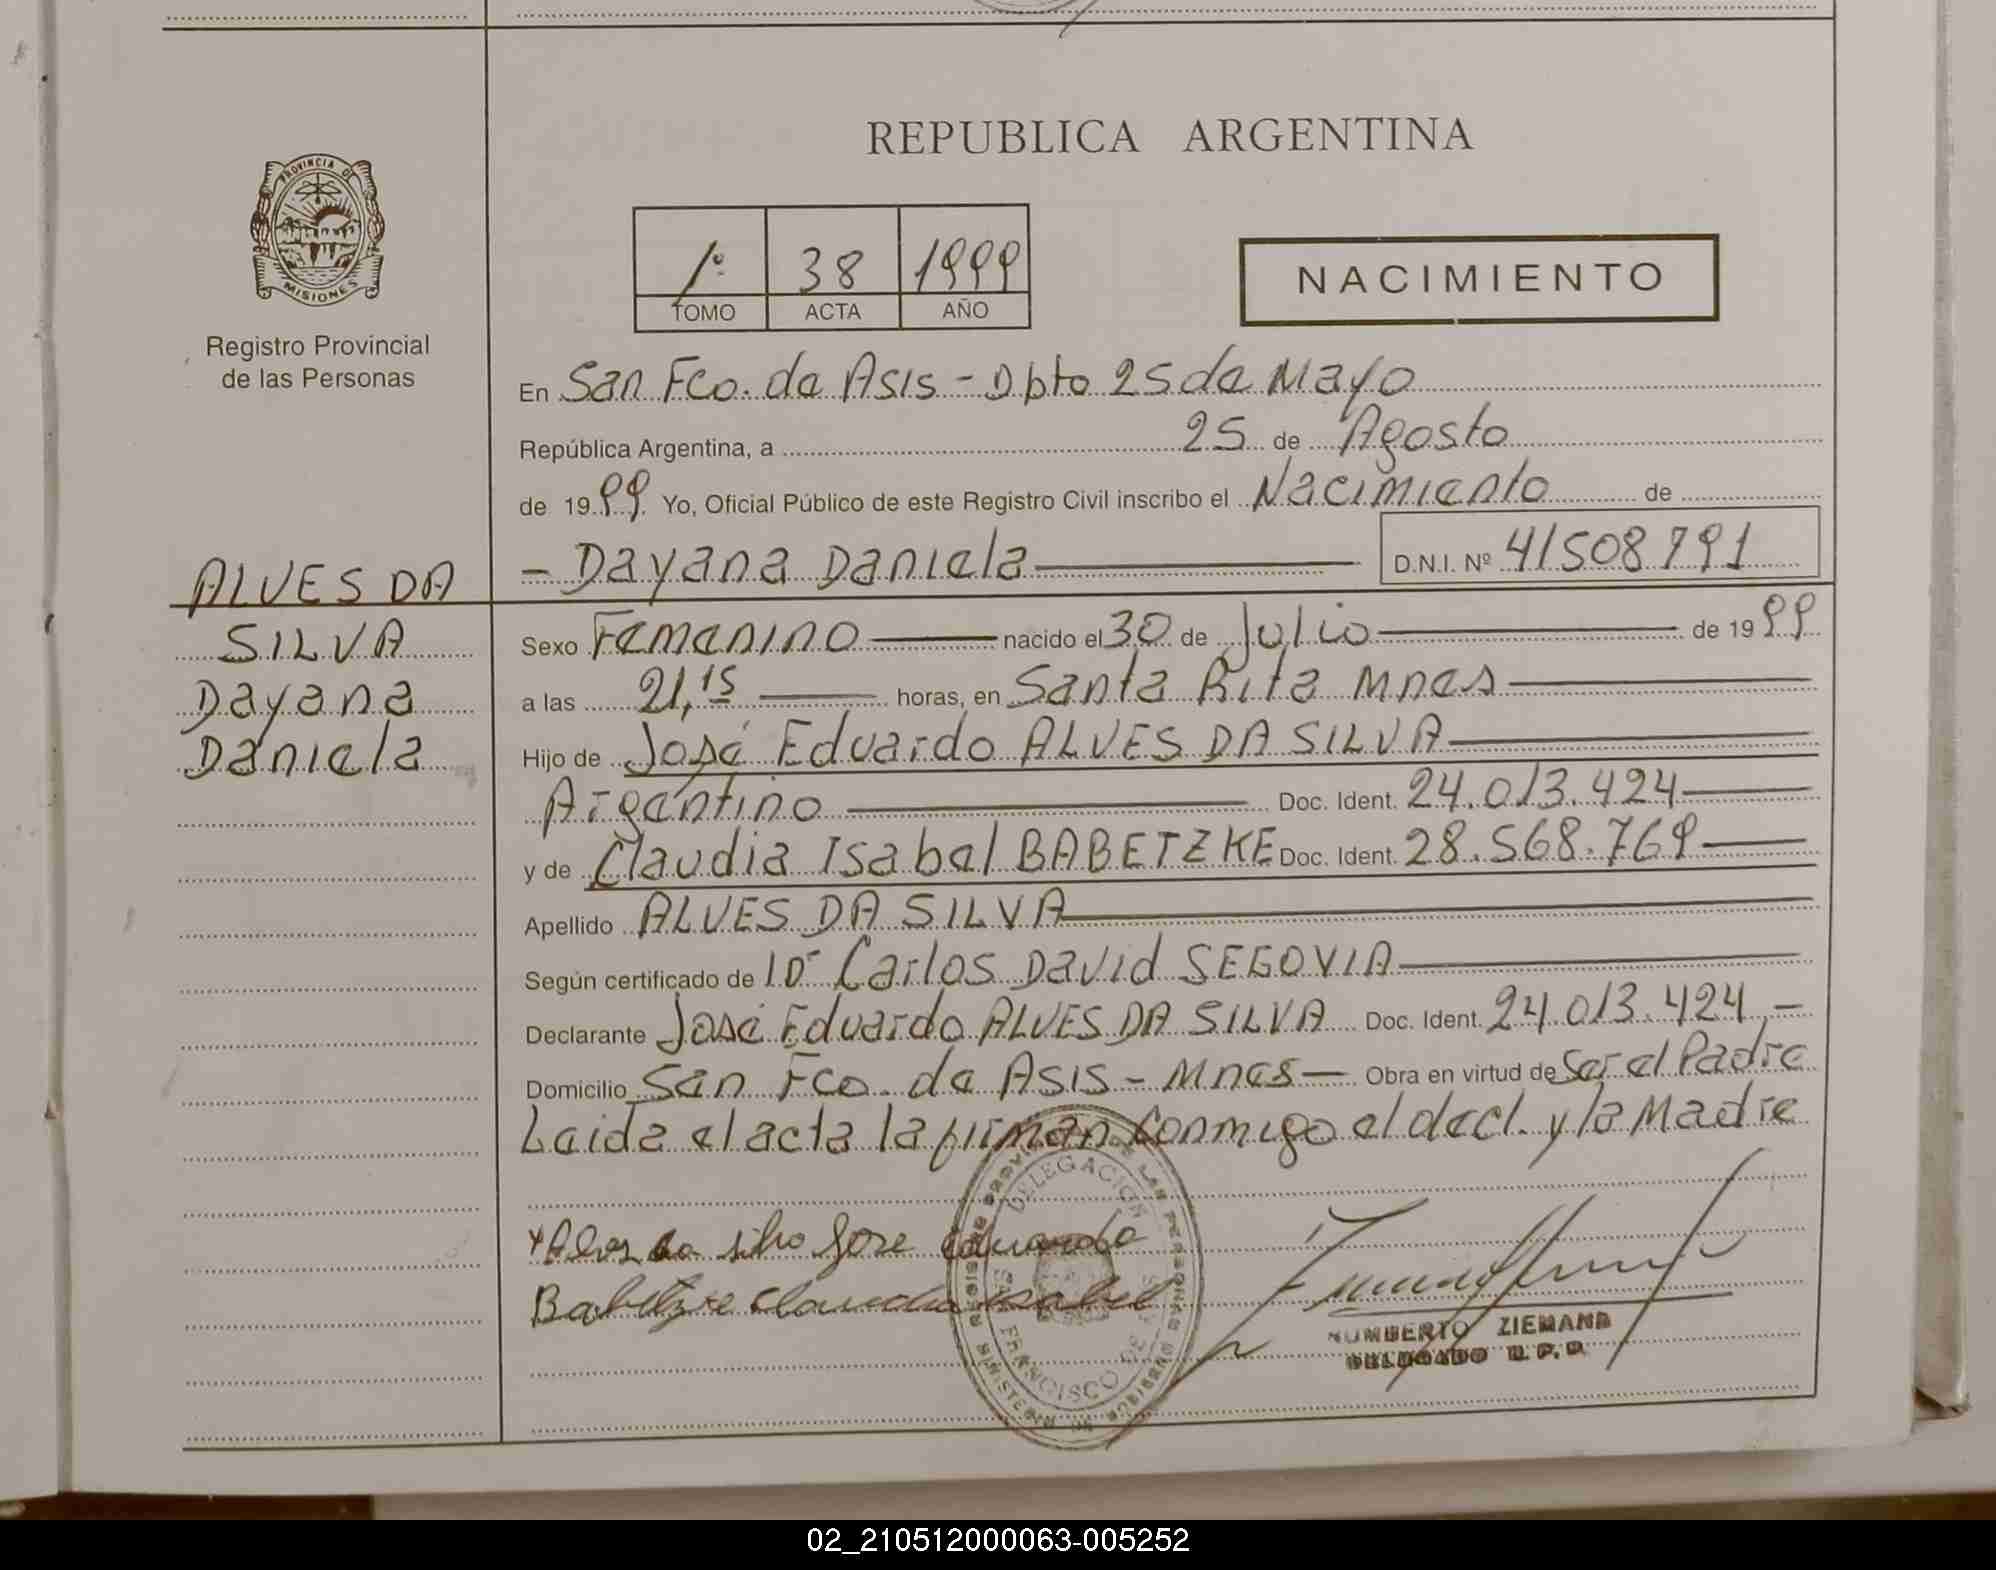 REPUBLICA ARGENTINA
PROVINCIA DE
MISIONES
Registro Provincial
de las Personas
1º 38 1999
TOMO ACTA AÑO
NACIMIENTO
En San Fco. de Asis - Dpto 25 de Mayo
República Argentina, a 25 de Agosto
de 1999 Yo, Oficial Público de este Registro Civil inscribo el Nacimiento de
- Dayana Daniela D.N.I. Nº 41508791
ALVES DA
SILVA
Dayana
Daniela
Sexo Femenino nacido el 30 de Julio de 1999
a las 21,15 horas, en Santa Rita Mnes
Hijo de José Eduardo ALVES DA SILVA
Argentino Doc. Ident. 24.013.424
y de Claudia Isabel BABETZKE Doc. Ident. 28.568.769
Apellido ALVES DA SILVA
Según certificado de Carlos David SEGOVIA
Declarante José Eduardo ALVES DA SILVA Doc. Ident. 24.013.424 -
Domicilio San Fco. de Asis - Mnes - Obra en virtud de Ser el Padre
Leida el acta la firman Conmigo el decl. y la Madre
DELEGACION
SAN FRANCISCO DE ASIS
Alves da silva Jose Eduardo
Babetzke Claudia Isabel
HUMBERTO ZIEMANN
DELEGADO R.P.P.
02_210512000063-005252